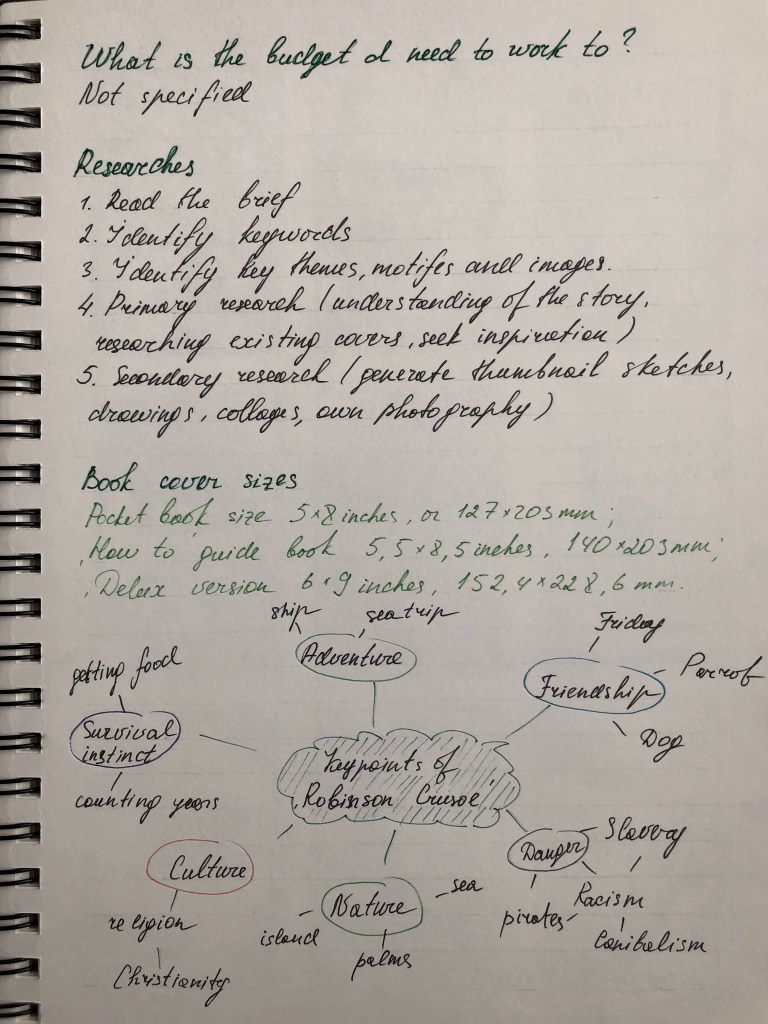 What is the budget I need to work to?
Not specified
Researches
1. Read the brief
2. Identify keywords
3. Identify key themes, motifes and images.
4. Primary research (understanding of the story,
researching existing covers, seek inspiration)
5. Secondary research (generate thumbnail sketches,
drawings, collages, own photography)
Book cover sizes
Pocket book size 5×8 inches, or 127×203 mm;
"How to" guide book 5,5×8,5 inches, 140×203 mm;
"Delux" version 6×9 inches, 152,4×228,6 mm.
ship
sea trip
Adventure
Friday
Parrot
Friendship
Dog
getting food
Survival
instinct
counting years
Keypoints of
"Robinson Crusoe"
Culture
religion
Christianity
Nature
sea
island
palms
Danger
Slavery
Racism
pirates
Canibalism